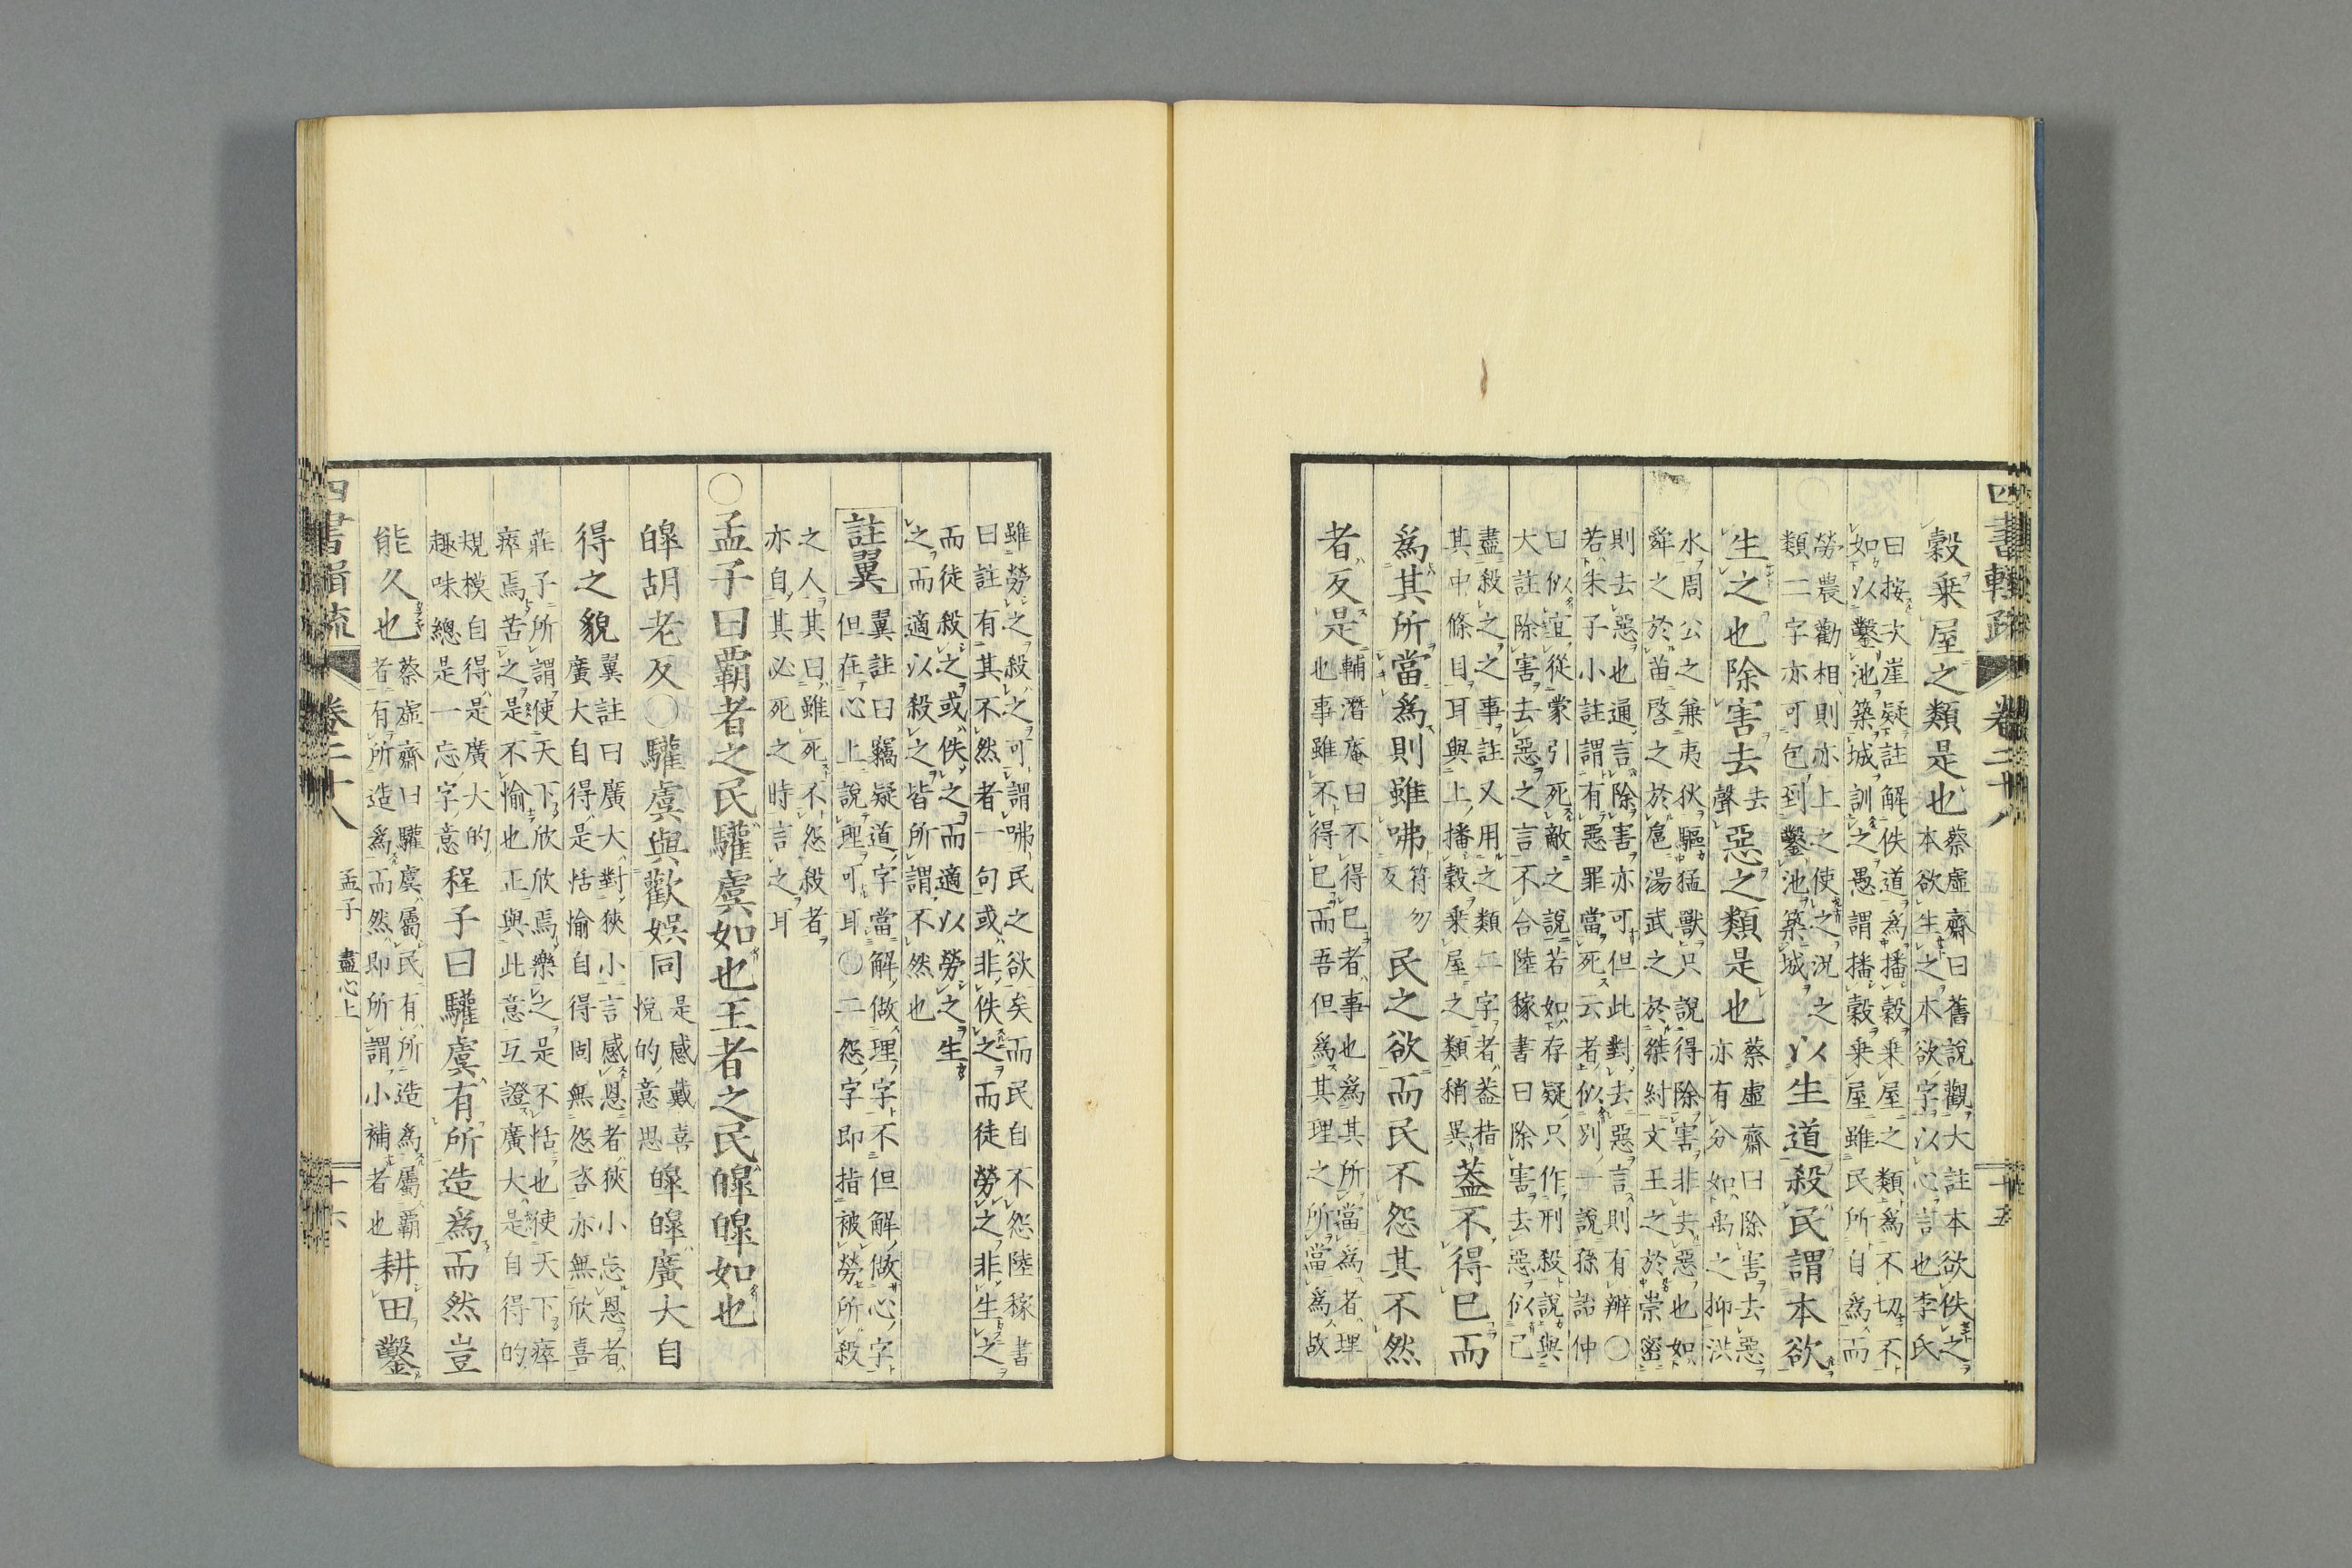 四書輯疏 卷二十八 十五
穀乗屋之類是也蔡虛齋曰舊說觀大註本欲佚之
本欲生之本欲字以心言也李氏
曰按大崖疑註解佚道爲播穀乗屋之類爲不切不
如以鑿池築城訓之愚謂播穀乗屋雖民所自爲而
勞農勸相則亦上之使之況之
類二字亦可包到鑿池築城以生道殺民謂本欲
生之也除害去去聲惡之類是也蔡虛齋曰除害去惡
亦有分如禹之抑洪
水周公之兼夷狄驅猛獸只說得除害非去惡也如
舜之於苗啓之於扈湯武之於桀紂文王之於崇密
則去惡也通言除害亦可但此對去惡言則有辨〇
若朱子小註謂有惡罪當死云者似別一說孫詒仲
曰似宜從蒙引死敵之說若如存疑只作刑殺說與
大註除害去惡之言不合陸稼書曰除害去惡似已
盡殺之之事註又用之類二字者葢指
其中條目耳與上播穀乗屋之類稍異葢不得已而
爲其所當爲則雖咈符勿反民之欲而民不怨其不然
者反是輔潛庵曰不得已者事也爲其所當爲者理
也事雖不得已而吾但爲其理之所當爲故
雖勞之殺之可謂咈民之欲矣而民自不怨陸稼書
曰註有其不然者一句或非佚之而徒勞之非生之
而徒殺之或佚之而適以勞之生
之而適以殺之皆所謂不然也
註翼翼註曰竊疑道字當解做理字不但解做心字
但在心上說理可耳〇二怨字即指被勞所殺
之人其曰雖死不怨殺者
亦自其必死之時言之耳
〇孟子曰覇者之民驩虞如也王者之民皥皥如也
皥胡老反〇驩虞與歡娛同是感戴喜
悅的意思皥皥廣大自
得之貌翼註曰廣大對狹小言感恩者狹小忘恩者
廣大自得是恬愉自得固無怨咨亦無欣喜
莊子所謂使天下欣欣焉樂之是不恬也使天下瘁
瘁焉苦之是不愉也正與此意互證廣大是自得的
規模自得是廣大的
趣味總是一忘字意程子曰驩虞有所造爲而然豈
能久也蔡虛齋曰驩虞屬民有所造爲屬覇
者有所造爲而然即所謂小補者也耕田鑿
四書輯疏 卷二十八 孟子 盡心上 十六